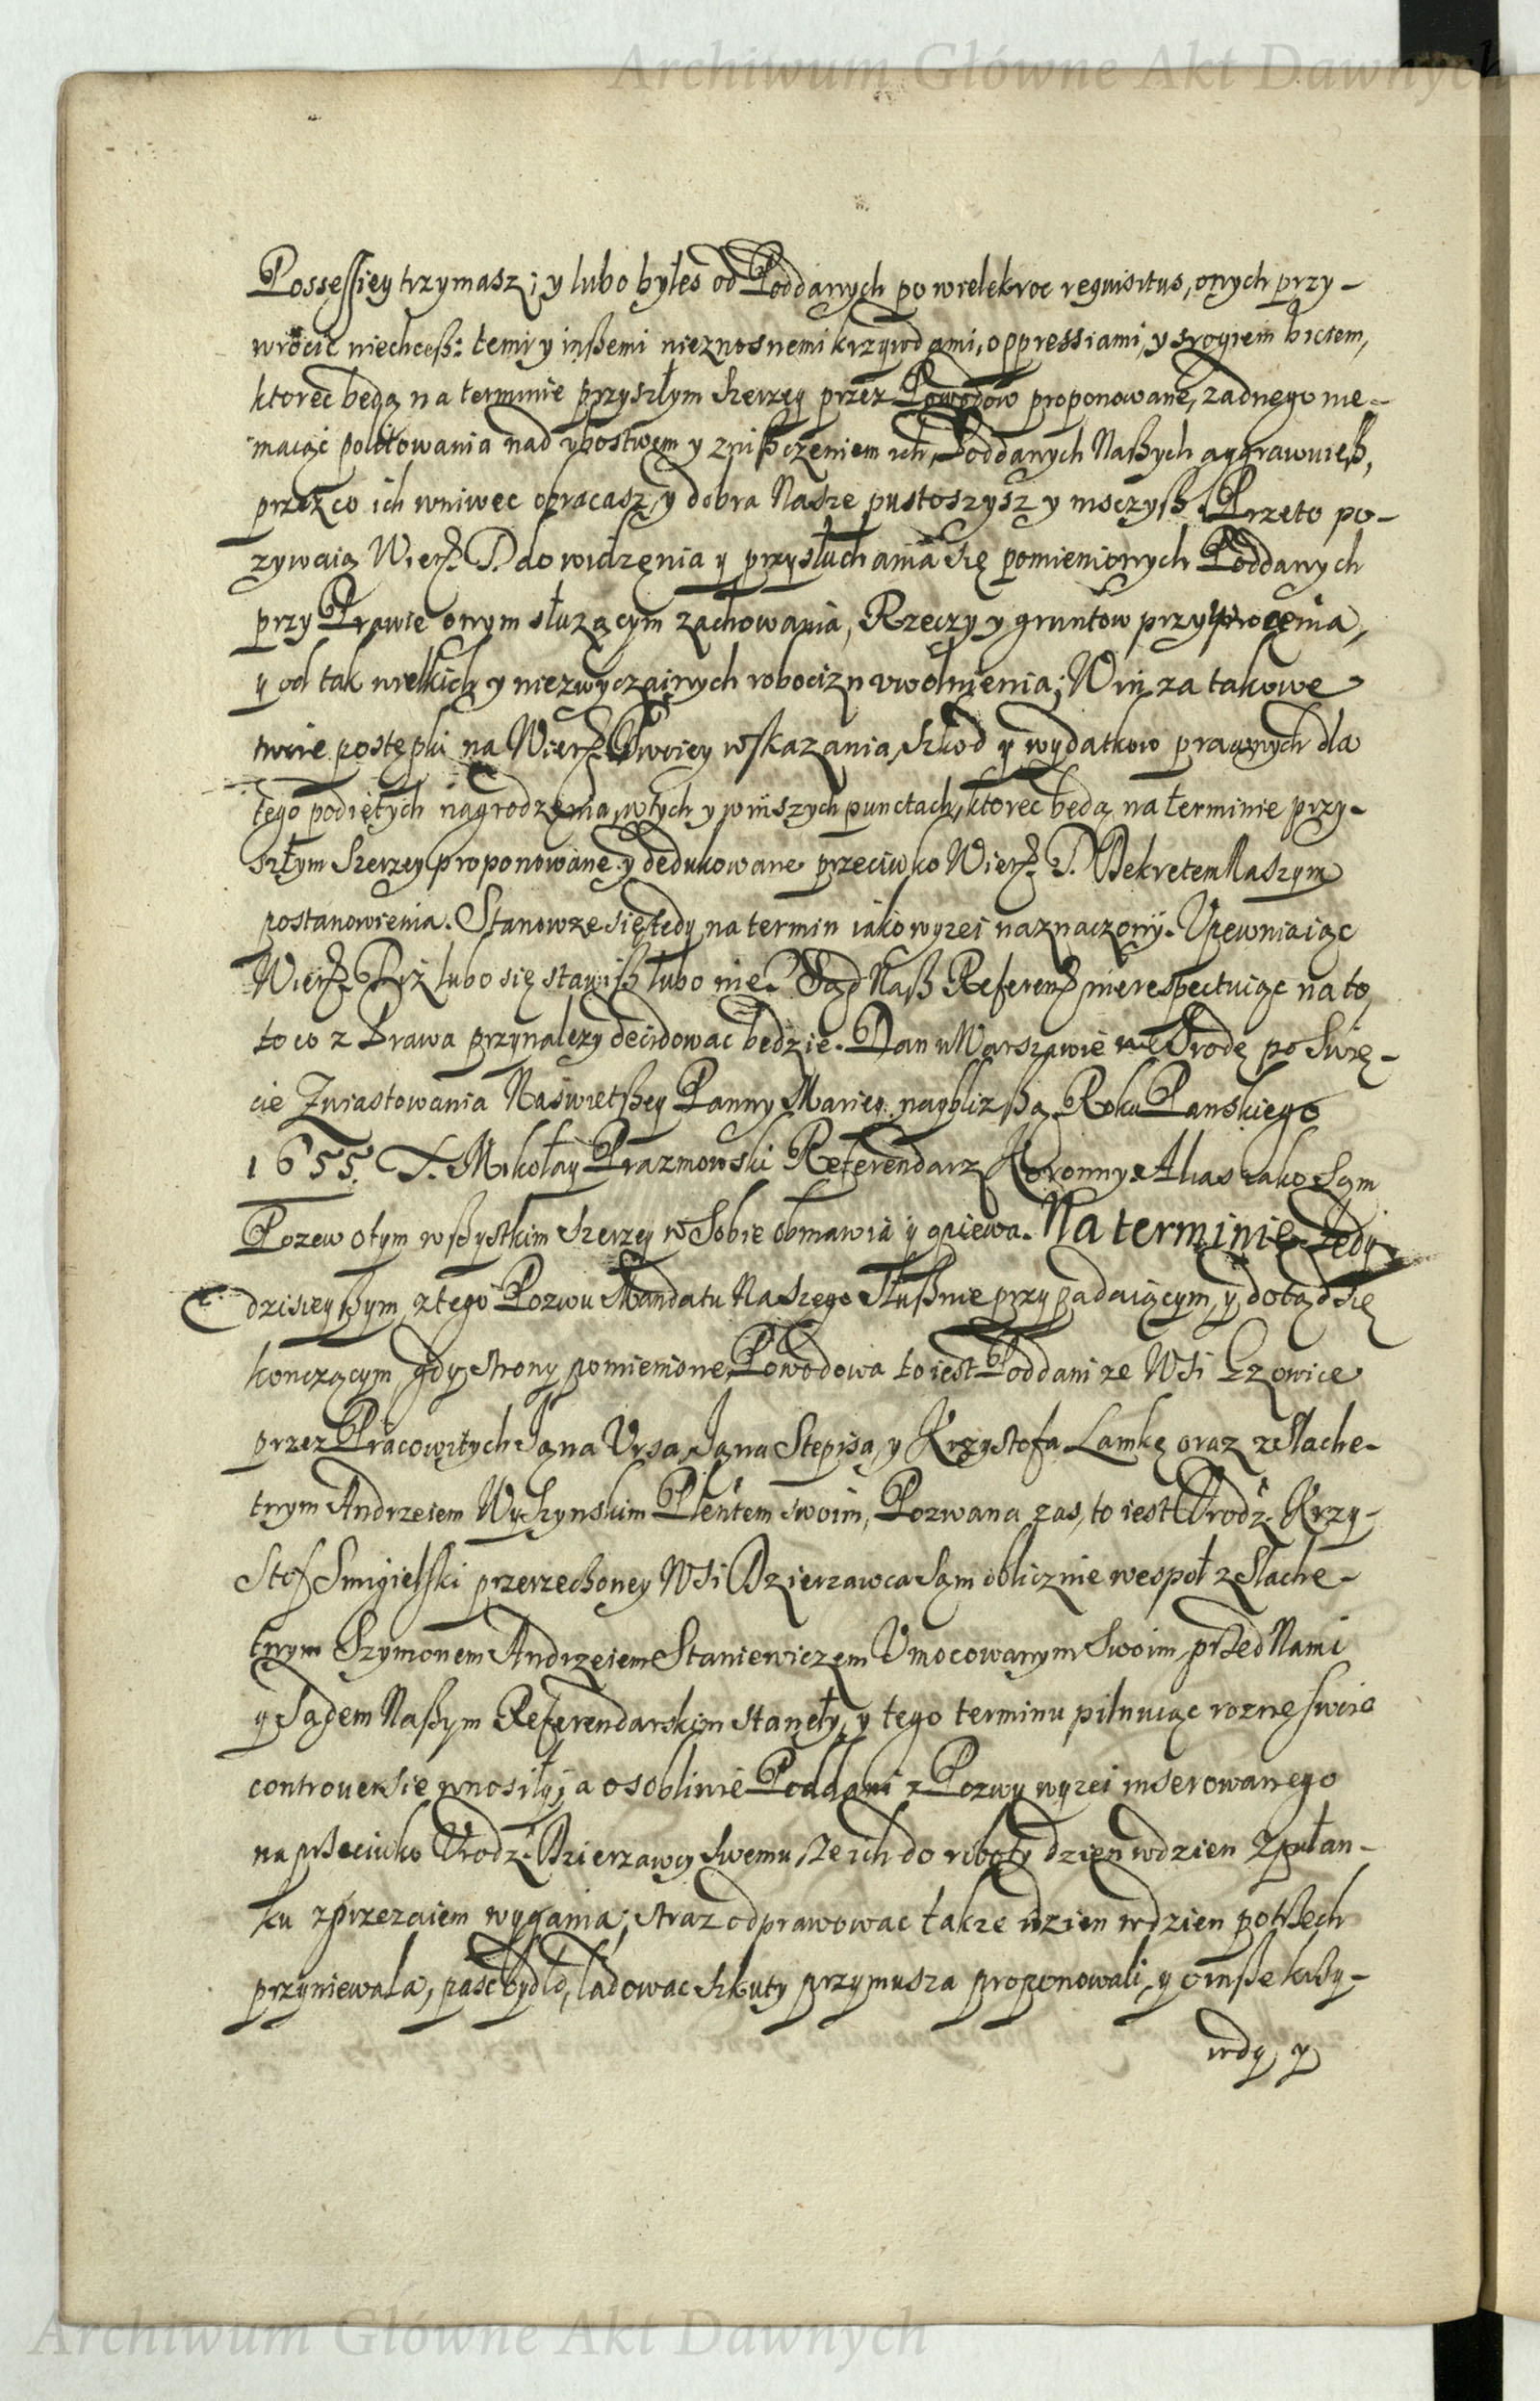 Archiwum Główne Akt Dawnych
Possessiey trzymasz; y lubo byłes od Poddanych po wielekroc requisitus, onych przy-
wrócic niechceß: temi y inßemi nieznosnemi krzywdami, oppressiami, y srogiem biciem,
ktoreć będą na terminie przyszłym szerzey przez Powodow proponowane, zadnego nie-
maiąc politowania nad ubostwem y znißczeniem ich, Poddanych Naßych aggrawuieß,
przez co ich wniwec obracasz, y dobra Nasze pustoszysz y niszczyß. Przeto po-
zywaią Wierz. T. do widzenia y przysłuchania się pomienionych Poddanych
przy Prawie onym słuzącym zachowania, Rzeczy y gruntow przywrocenia,
y od tak wielkich y niezwyczainych robocizn uwolnienia; Win za takowe
twoie postępki na Wierz. Twoiey wskazania, szkod y wydatkow prawnych dla
tego podiętych nagrodzenia, wtych y winszych punctach, ktorec będą na terminie przy-
szłym szerzey proponowane y dedukowane przeciwko Wierz. T. Dekretem Naszym
postanowienia. Stanowze się tedy na termin iako wyzei naznaczony. Upewniaiąc
Wierz. T. iz lubo się stawiß lubo nie. Sąd Naß Referens. nierespectuiąc na to,
to co z Prawa przynalezy decidowac będzie. Dan w Warszawie we Srodę po Swię-
cie Zwiastowania Naswietßey Panny Mariey naybliżßą Roku Pańskiego
1655. X. Mikołay Prazmowski Referendarz Koronny. Alias iako Sąm
Pozew otym wßystkim szerzey w Sobie obmawia y opiewa. Na terminie tedy
dzisieyßym, ztego Pozwu Mandatu Naszego Słußnie przypadaiącym, y dotąd się
konczącym gdy strony pomienione, Powodowa to iest Poddani ze Wsi Łzowice
przez Pracowitych Jana Ursa, Jana Stepisa, y Krzystofa Lamkę oraz z Slache-
tnym Andrzeiem Wyszynskim Plentem swoim, Pozwana zas, to iest Urodz. Krzy-
stof Smigielski przerzechoney Wsi Dzierzawca Sąm oblicznie wespoł z Slache-
tnym Szymonem Andrzeiem Staniewiczem Umocowanym Swoim, przed Nami
y Sądem Naßym Referendarskim staneły, y tego terminu pilnuiąc rozne swoie
controuersie wnosiły; a osobliwie Poddani z Pozwu wyzei inserowanego
naprzeciwko Urodz. Dzierzawcy swemu, ze ich do roboty dzien wdzien z pułan-
ku zprzezaiem wygania; straz odprawowac takze dzien wdzien potrzech
przyniewala, pasc bydło, ładowac szkuty przymusza proponowali, y o inße krzy-
wdy, y
Archiwum Główne Akt Dawnych